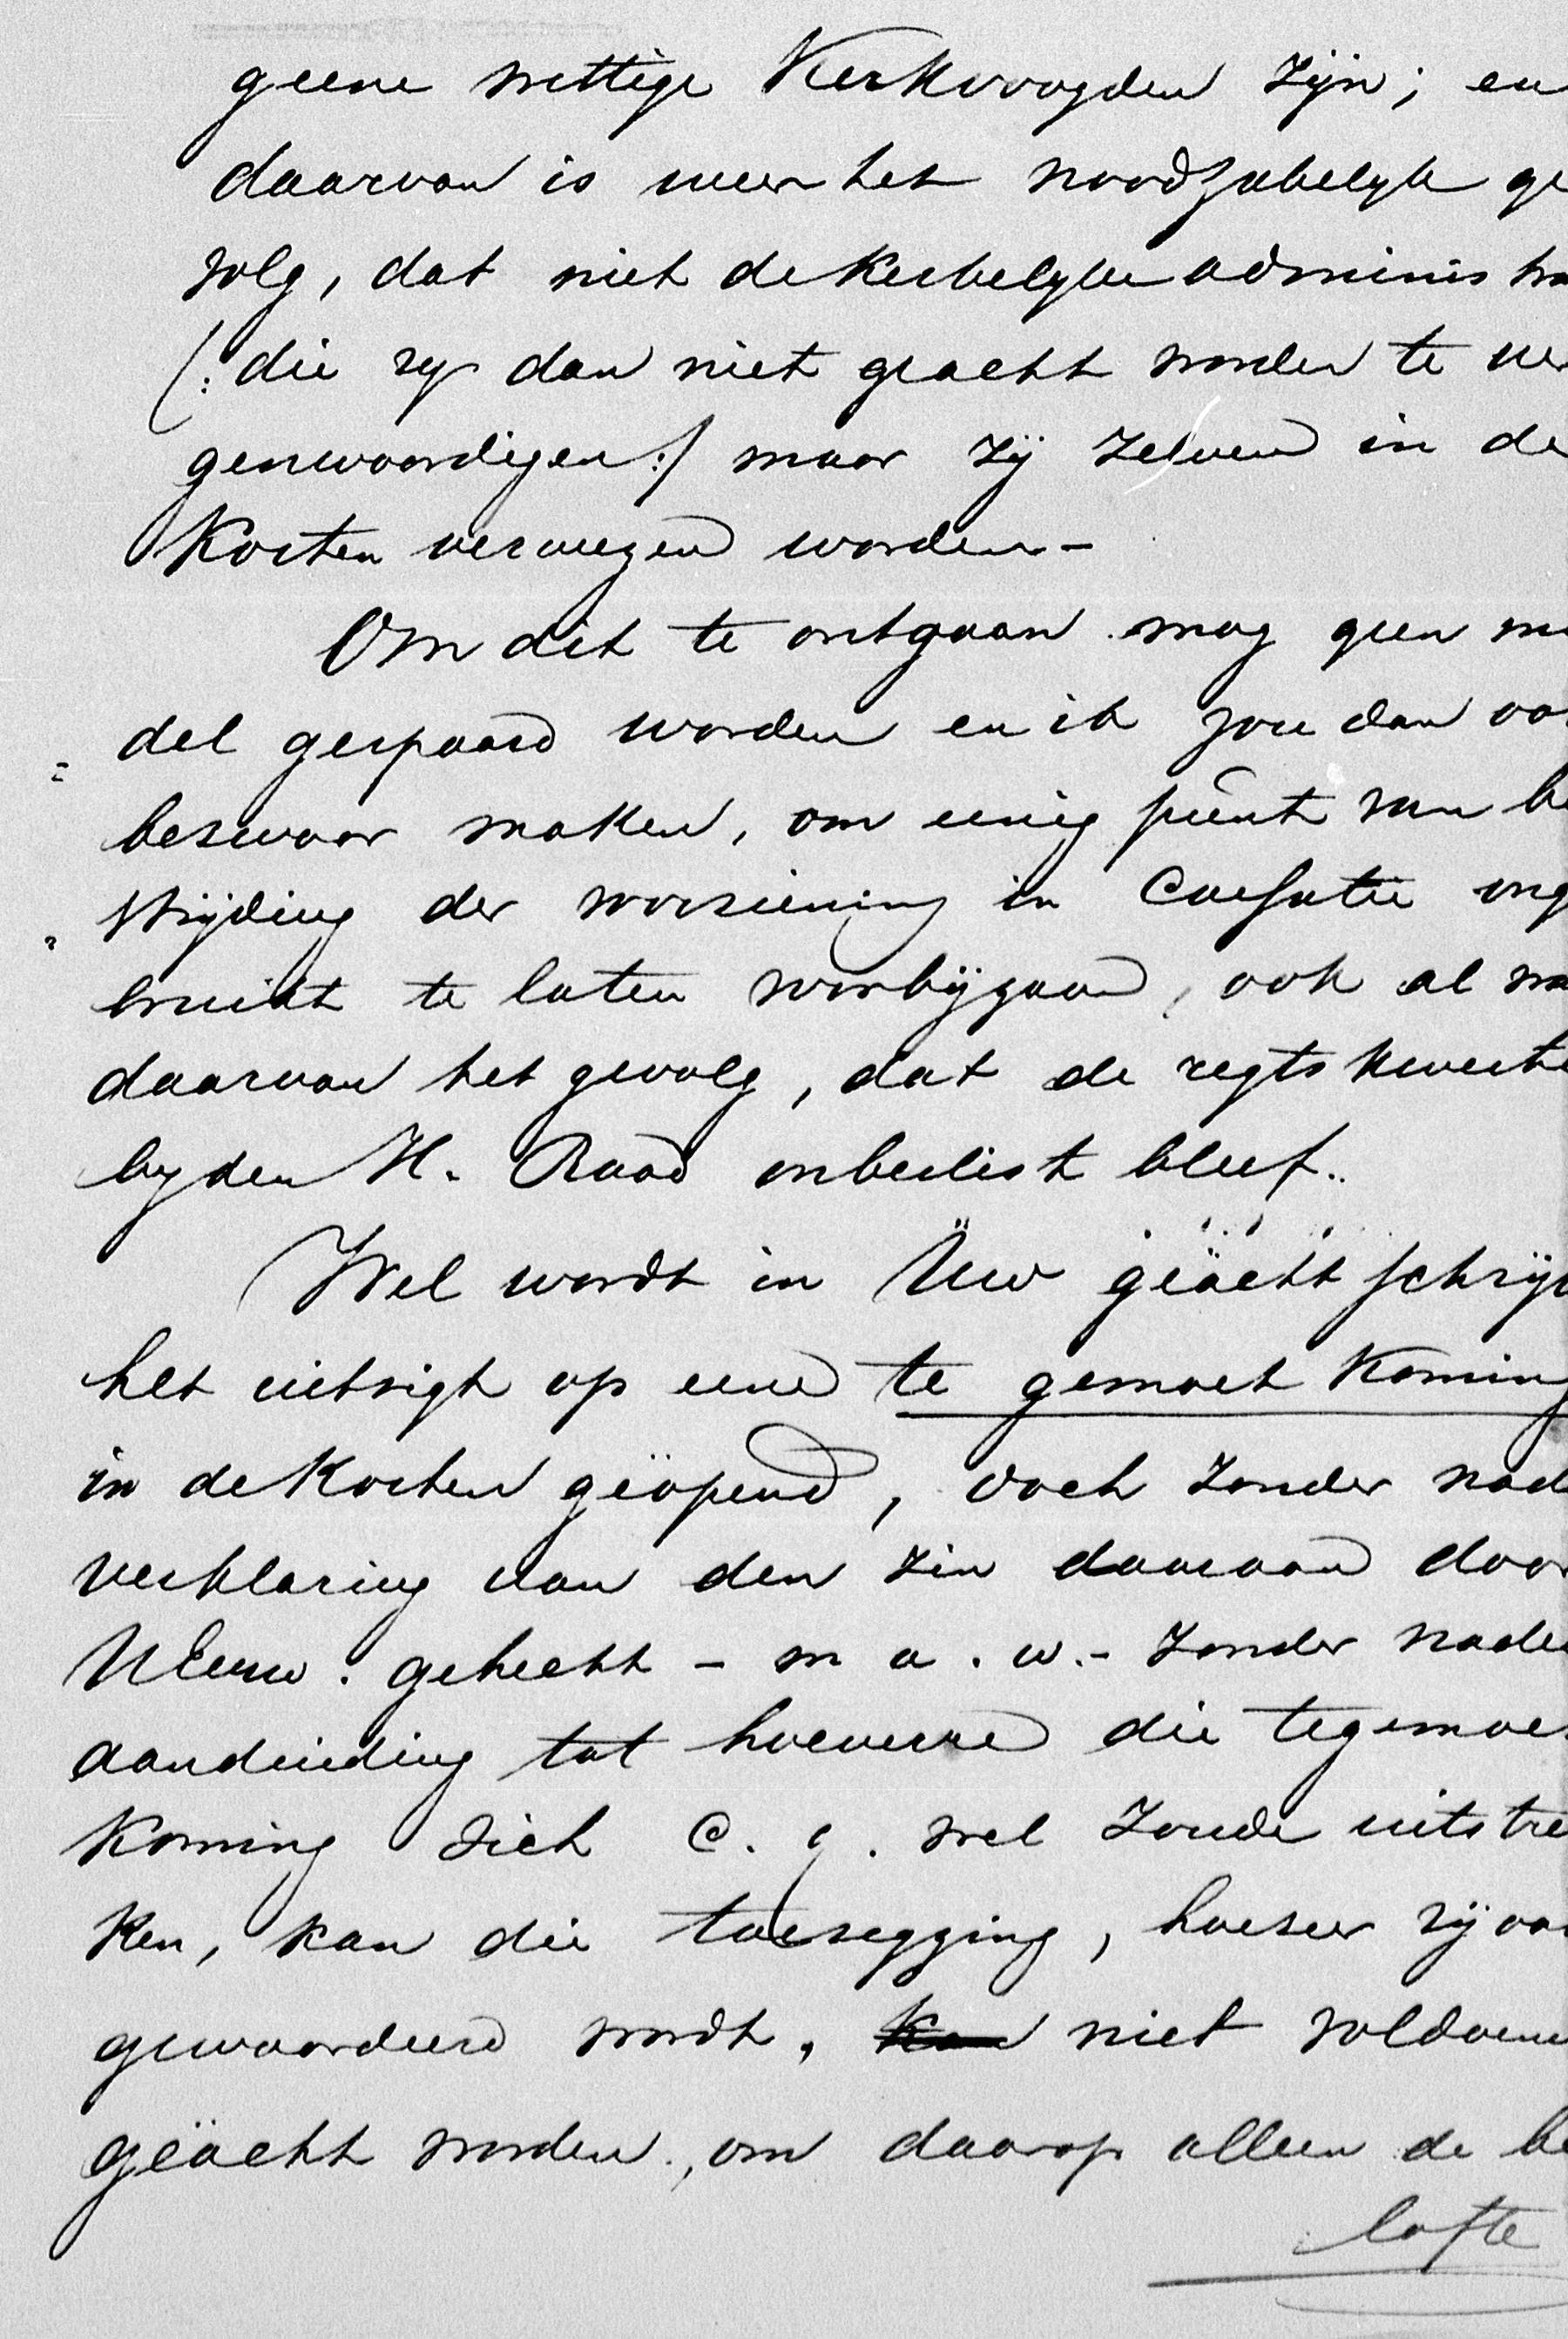 geene wettige Kerkvoogden zijn; en
daarvan is weer het noodzakelyk ge
volg, dat niet de Kerkelyke adminis tra
(: die zy dan niet geacht worden te ver
genwoordigen :) maar zij zelven in de
Kosten verwezen worden -
Om dit te ontgaan mag geen mi
del gespaard worden en ik zou dan oo
beswaar maken, om eenig punt van be
strijding der voorziening in Cassatie ong
bruikt te laten voorbijgaan, ook al wa
daarvan het gevolg, dat de regts kwestie
by den H. Raad onbeslist bleef.
Wel wordt in Uw geächt schrijv
het uitzigt op eene te gemoet Koming
in de Kosten geöpend, doch zonder nad
verklaring van den zin daaraan door
UEerw. gehecht - m a. w. - zonder nader
aanduiding tot hoeverre die tegemoet
Koming zich C. q. wel zoude uitstre
ken, kan die toezegging, hoezeer zij oo
gewaardeerd wordt, kan niet voldoen
geächt worden, om daarop alleen de be
lofte